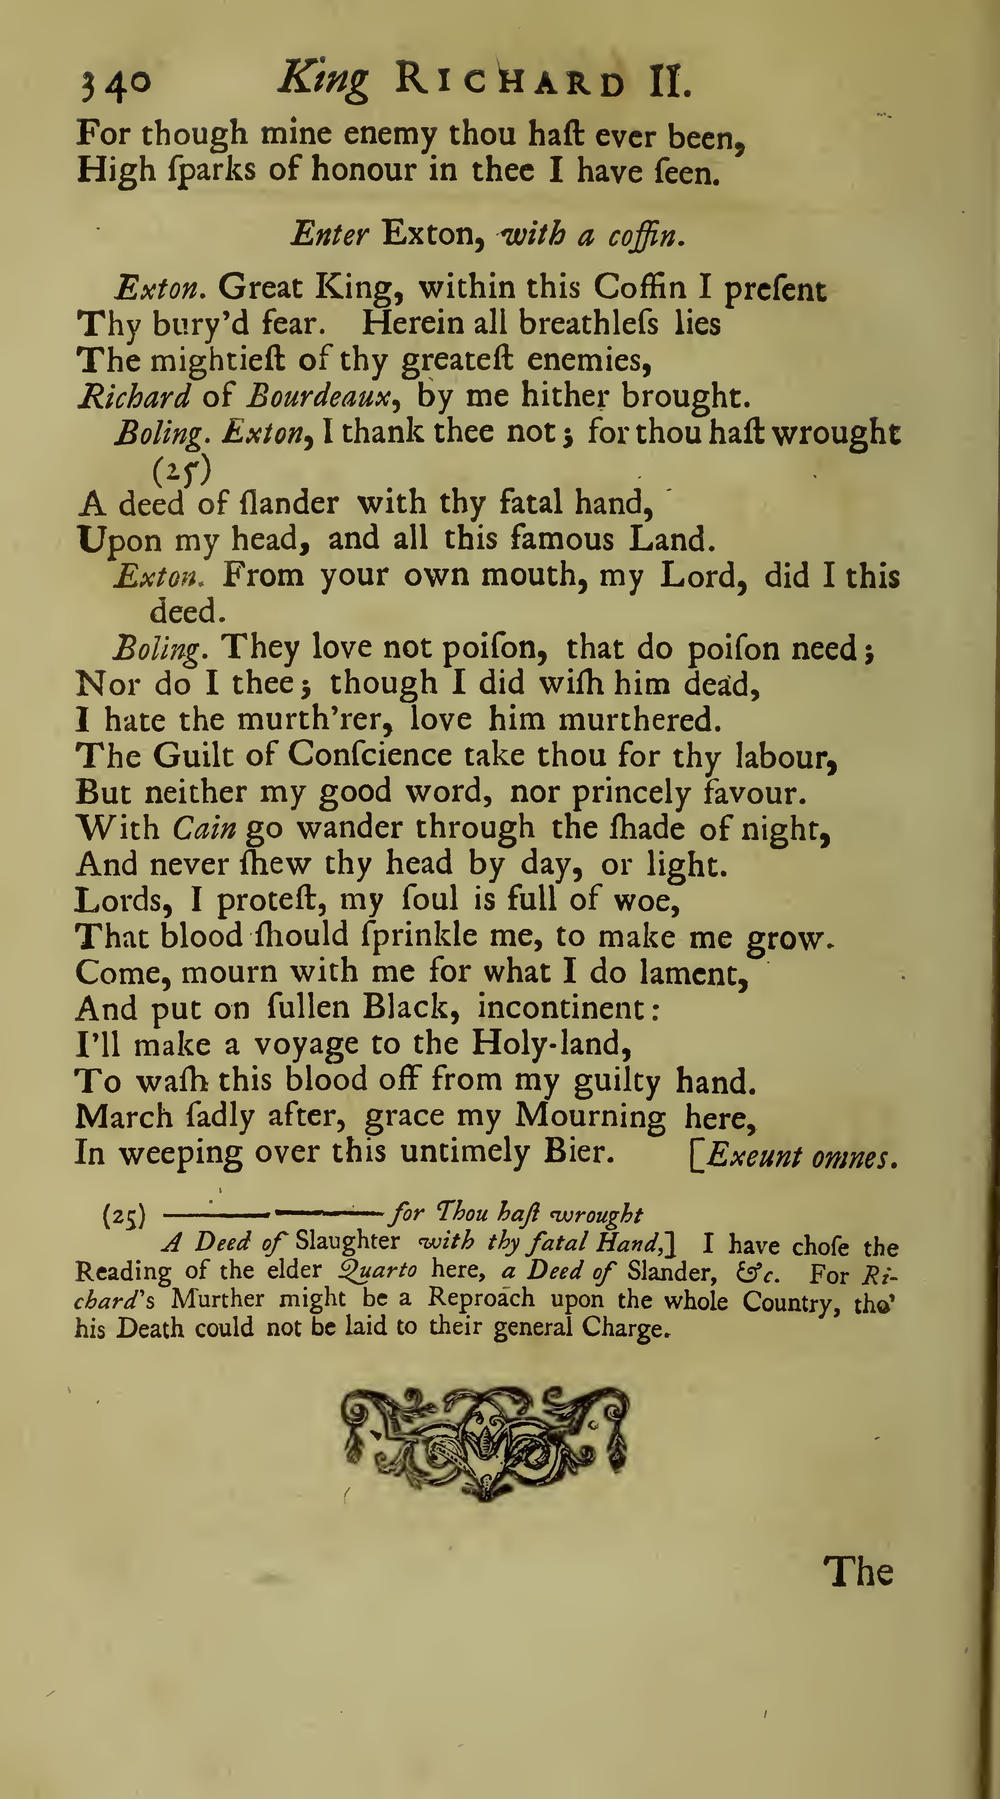 340 King RICHARD II.
For though mine enemy thou haſt ever been,
High ſparks of honour in thee I have ſeen.
Enter Exton, with a coffin.
Exton. Great King, within this Coffin I preſent
Thy bury'd fear. Herein all breathleſs lies
The mightieſt of thy greateſt enemies,
Richard of Bourdeaux, by me hither brought.
Boling. Exton, I thank thee not; for thou haſt wrought
(25)
A deed of ſlander with thy fatal hand,
Upon my head, and all this famous Land.
Exton. From your own mouth, my Lord, did I this
deed.
Boling. They love not poiſon, that do poiſon need;
Nor do I thee; though I did wiſh him dead,
I hate the murth'rer, love him murthered.
The Guilt of Conſcience take thou for thy labour,
But neither my good word, nor princely favour.
With Cain go wander through the ſhade of night,
And never ſhew thy head by day, or light.
Lords, I proteſt, my ſoul is full of woe,
That blood ſhould ſprinkle me, to make me grow.
Come, mourn with me for what I do lament,
And put on ſullen Black, incontinent:
I'll make a voyage to the Holy-land,
To waſh this blood off from my guilty hand.
March ſadly after, grace my Mourning here,
In weeping over this untimely Bier. [Exeunt omnes.
(25) —————— for Thou haſt wrought
A Deed of Slaughter with thy fatal Hand,] I have choſe the
Reading of the elder Quarto here, a Deed of Slander, &c. For Ri-
chard's Murther might be a Reproach upon the whole Country, tho'
his Death could not be laid to their general Charge.
The